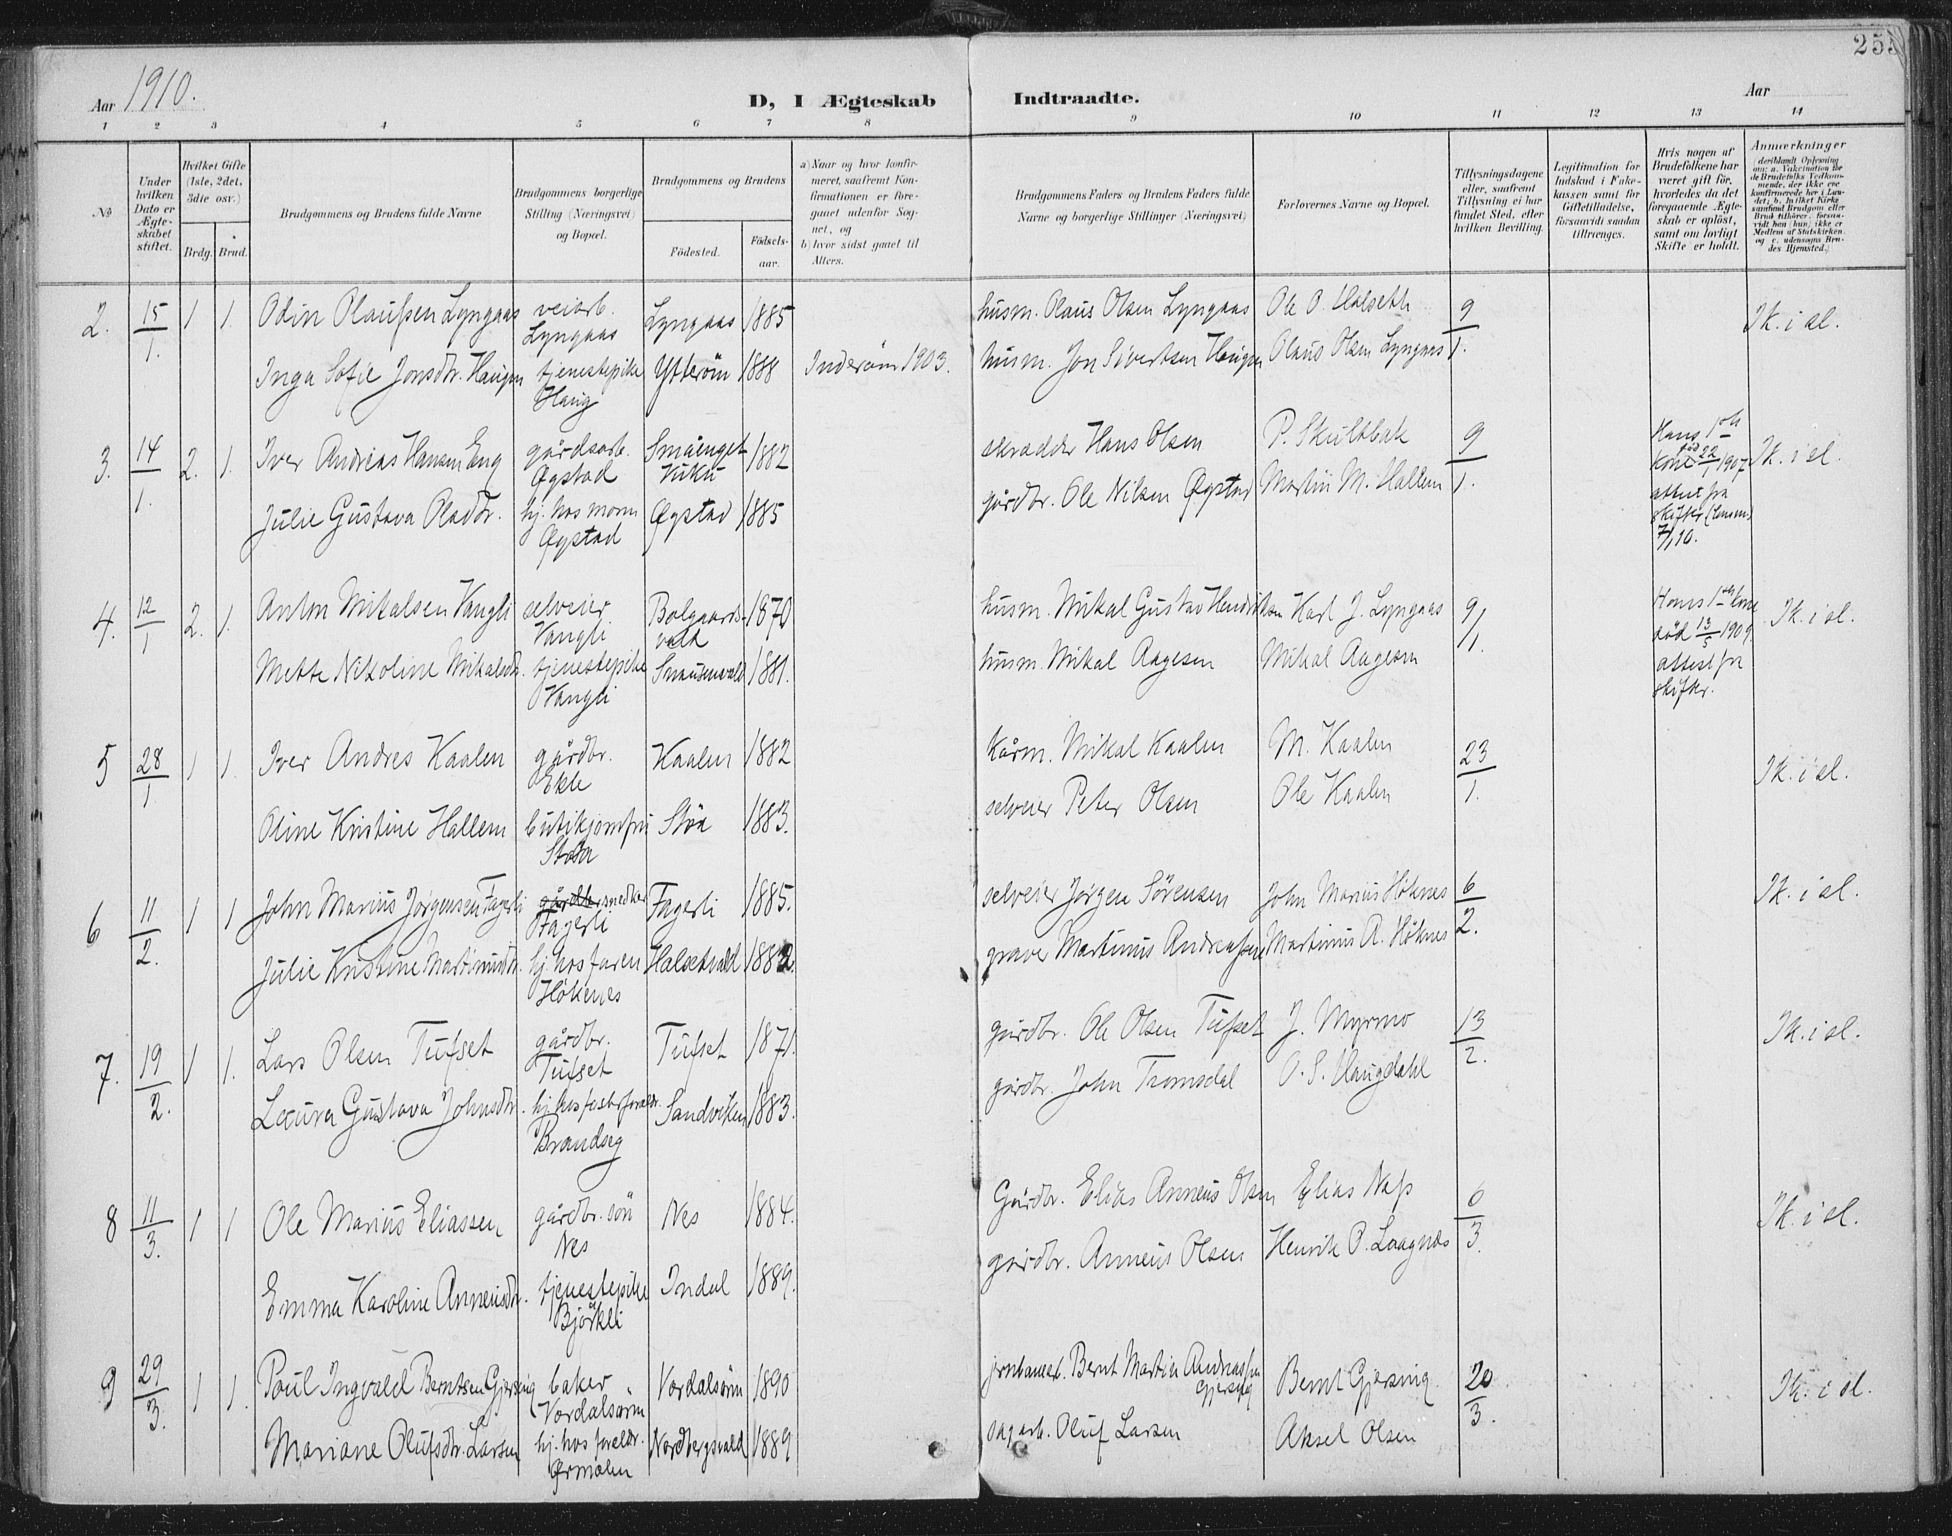 255
Aar 1910.
D, I Ægteskab Indtraadte.
Aar
1 2 3 4 5 6 7 8 9 10 11 12 13 14
No
Under hvilken Dato er Ægteskabet stiftet.
Hvilket Gifte (1ste, 2det, 3die osv.)
Brdg. Brud.
Brudgommens og Brudens fulde Navne
Brudgommens borgerlige Stilling (Næringsvei) og Bopæl.
Brudgommens og Brudens
Fødested.
Fødselsaar.
a) Naar og hvor konfirmeret, saafremt Konfirmationen er foregaaet udenfor Sognet, og
b) hvor sidst gaaet til Alters.
Brudgommens Faders og Brudens Faders fulde Navne og borgerlige Stillinger (Næringsvei)
Forlovernes Navne og Bopæl.
Tillysningsdagene eller, saafremt Tillysning ei har fundet Sted, efter hvilken Bevilling.
Legitimation for Indskud i Fakekassen samt for Giftetilladelse, forsaavidt saadan tiltrænges.
Hvis nogen af Brudefolkene har været gift før, hvorledes da det foregaaende Ægteskab er opløst, samt om lovligt Skifte er holdt.
Anmerkninger
2. 15/1. 1 1. Odin Olaussen Lyngaas veiarb. Lyngaas Lyngaas 1885 husm. Olaus Olsen Lyngaas Ole O. Halseth 9/1. Ik. i el.
Inga Sofie Jonsdtr. Haugen tjenestepike Haug Ytterøen 1888 Inderøen 1903. husm. Jon Sivertsen Haugen Olaus Olsen Lyngaas
3. 14/1. 2. 1. Iver Andreas Hansen Eng gårdsarb. Øgstad Småenget Vuku 1882 skrædder Hans Olsen P. Skultbak 9/1. Hans 1ste kone død 22/1 1907 attest fra skifter. (Lensm) 7/1 10. Ik. i el.
Julie Gustava Olasdtr. hj. hos moren Øgstad Øgstad 1885 gårdbr. Ole Nilsen Øgstad Martin M. Hallem
4. 12/1 2. 1. Anton Mikalsen Vangli selveier Vangli Bolgaardsvald 1870 husm. Mikal Gustav Hendriksen Karl J. Lyngaas 9/1. Hans 1ste kone død 13/5 1909. attest fra skifter. Ik. i el.
Mette Nikoline Mikalsdtr. tjenestepike Vangli Snausenvald 1881. husm. Mikal Aagesen Mikal Aagesen
5 28/1. 1 1. Iver Andres Kaalen gårdbr. Ekle Kaalen 1882 Kårm. Mikal Kaalen M. Kaalen 23/1. Ik. i el.
Oline Kristine Hallem butikjomfru Stöa Stöa 1883. selveier Peter Olsen Ole Kaalen
6 11/2. 1 1 John Marius Jørgensen Fagerli snedker Fagerli Fagerli 1885. selveier Jørgen Sørensen John Marius Höknes 6/2. Ik. i el.
Julie Kristine Martinusdtr. hj. hos faren Höknes Halsetvald 1882. graver Martinus Andreassen Martinus A. Höknes
7. 19/2. 1 1. Lars Olsen Tufset gårdbr. Tufset Tufset 1871. gårdbr. Ole Olsen Tufset J. Myrmo 13/2. Ik. i el.
Laura Gustava Johnsdtr. hj. hos fosterforældr. Brandseg Sandviken 1883. gårdbr. John Tromsdal O. S. Haugdahl
8 11/3. 1 1 Ole Marius Eliassen gårdbr. sön Nes Nes 1884. Gårdbr. Elias Anneus Olsen Elias Næss 6/3. Ik. i el.
Emma Karoline Anneusdtr. tjenestepike Björkli Indal 1889. gårdbr. Anneus Olsen Henrik P. Laagnæs
9 29/3. 1 1. Poul Ingvald Berntsen Gjersing baker Værdalsøren Værdalsøren 1890 jernbanest. Bernt Martin Andreassen Gjersing Bernt Gjersing 20/3. Ik. i el.
Mariane Olufsdtr. Larsen hj. hos foreldr. Ørmelen Nordbergsvald 1889 sagarb. Oluf Larsen Aksel Olsen